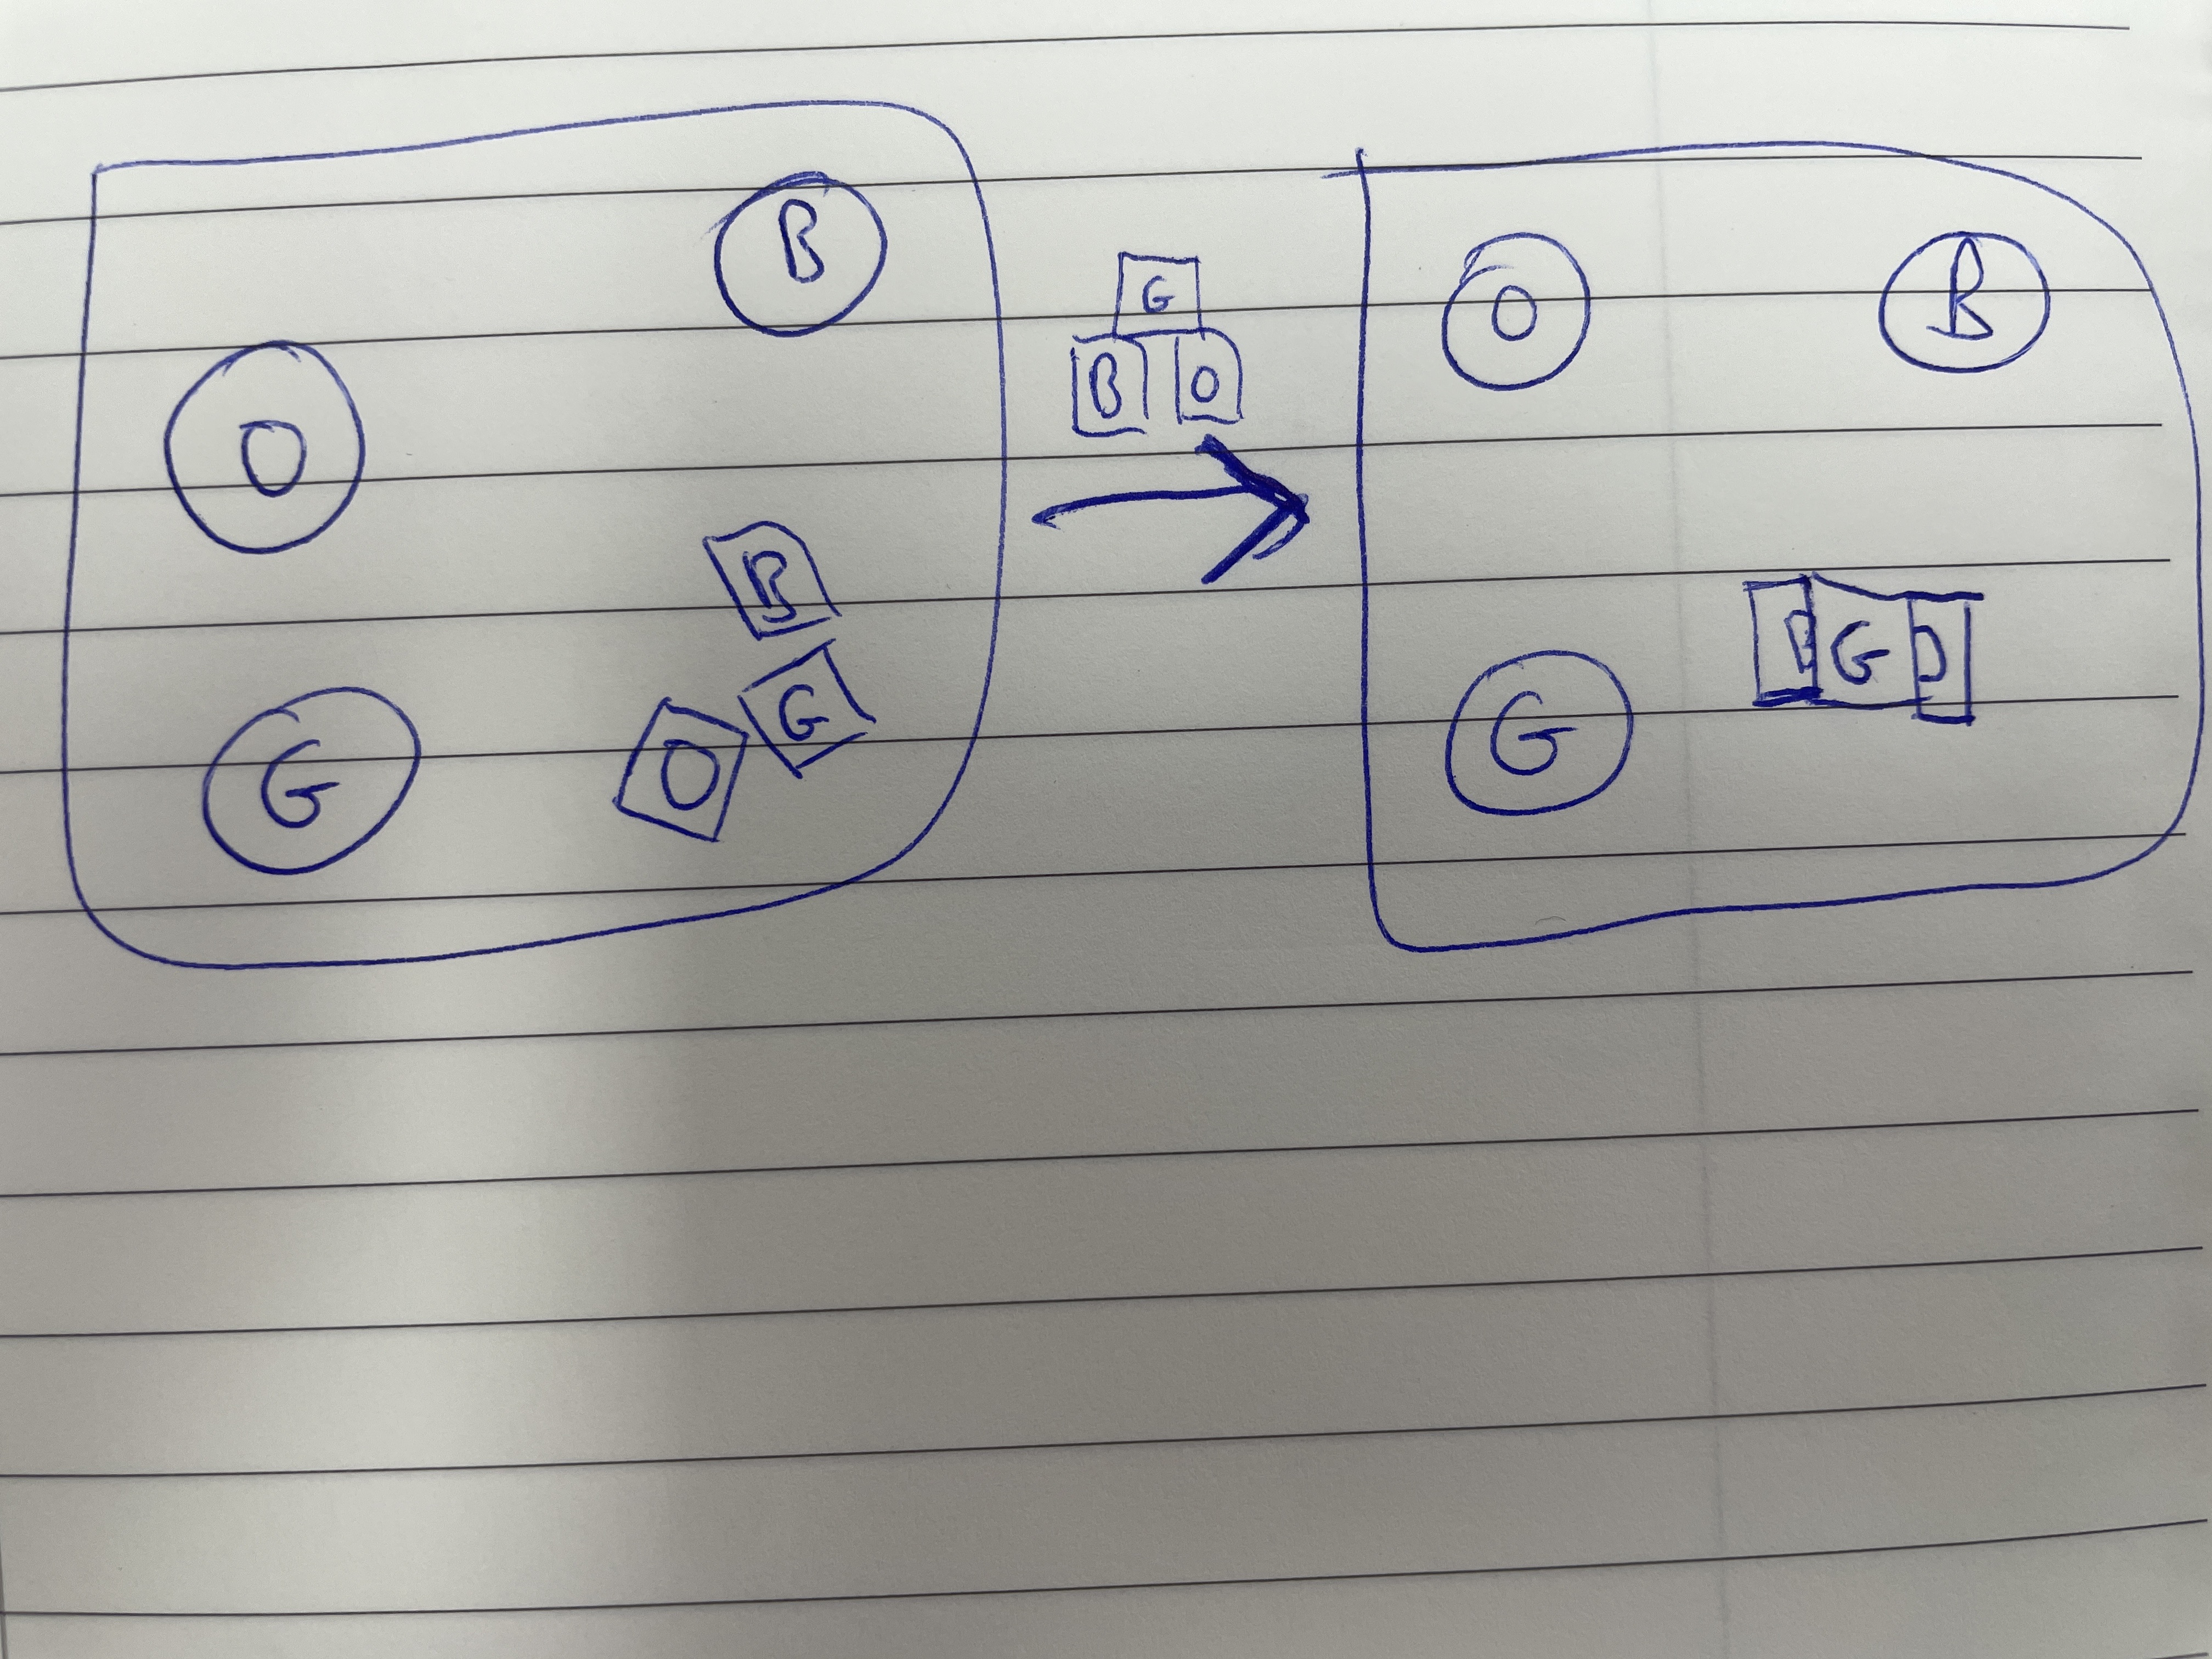 B
O
B
G
O
G
G
B O
O B
B G O
G